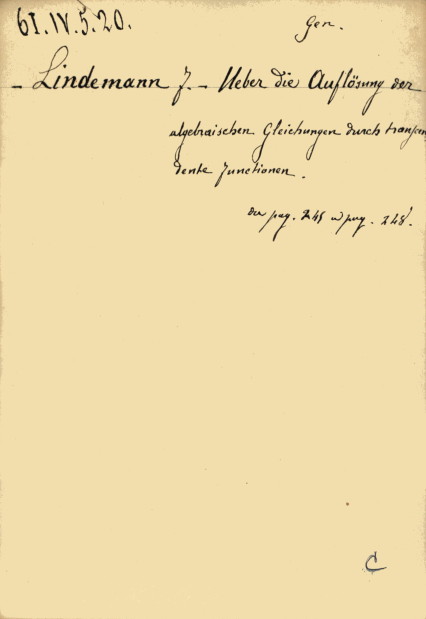 61.IV.5.20.
Gen.
- Lindemann F. - Ueber die Auflösung der
algebraischen Gleichungen durch transcen
dente Functionen.
da pag. 245 a pag. 248.
C